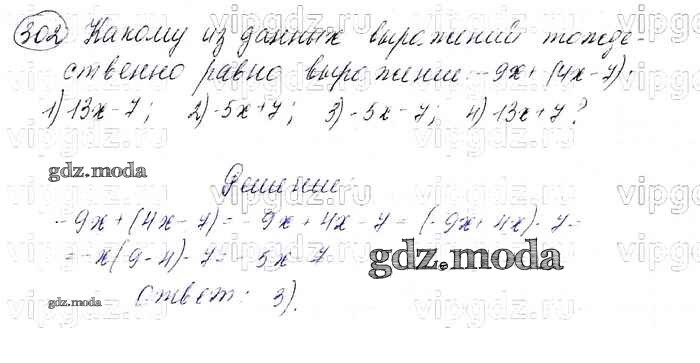 302 Какому из данных выражений тожде-
ственно равно выражение: -9x + (4x - 7):
1) 13x - 7; 2) -5x + 7; 3) -5x - 7; 4) -13x + 7?
gdz.moda
Решение:
-9x + (4x - 7) = -9x + 4x - 7 = (-9x + 4x) - 7 =
= -x(9 - 4) - 7 = -5x - 7
gdz.moda
gdz.moda
Ответ: 3).